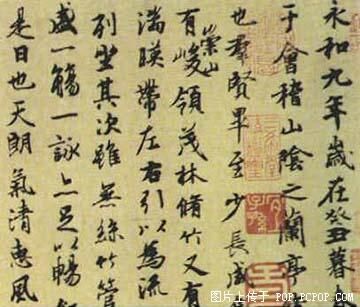 永和九年歲在癸丑暮
于會稽山陰之蘭亭
也羣賢畢至少長咸
有崇山峻領茂林脩竹又有
湍暎帶左右引以為流
列坐其次雖無絲竹管
盛一觴一詠亦足以暢
是日也天朗氣清惠風
图片上传于 POP.PCPOP.COM